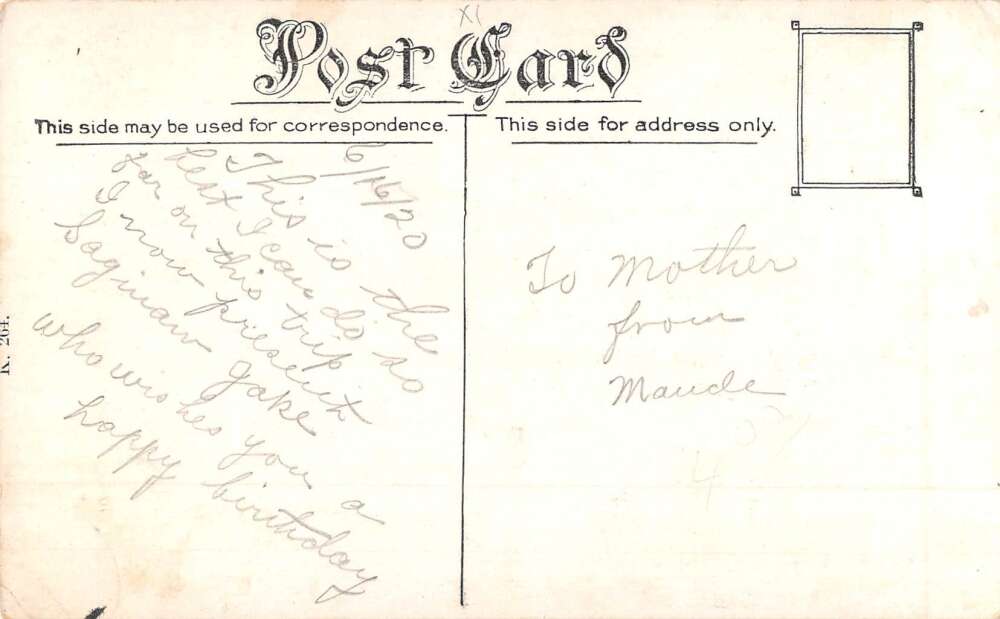 XI
Post Card
This side may be used for correspondence.
This side for address only.
6/16/20
This is the
best I can do so
far on this trip
I now present
Saginaw Jake
who wishes you a
happy birthday
To Mother
from
Maude
4
K. 264.